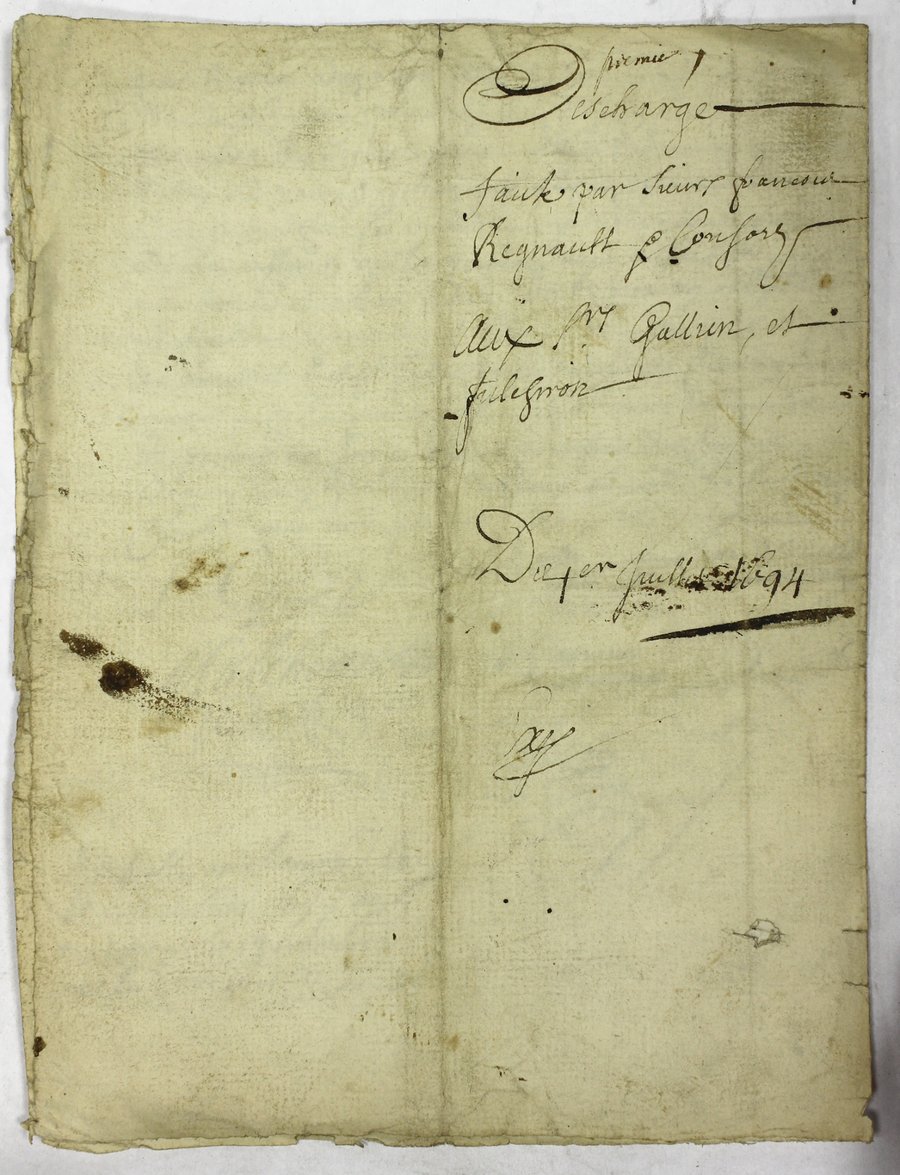 premie
Descharge
faite par Sieurs francois
Regnault & Consors
Aux Srs Gallien, et
Du 1er Juillet 1694